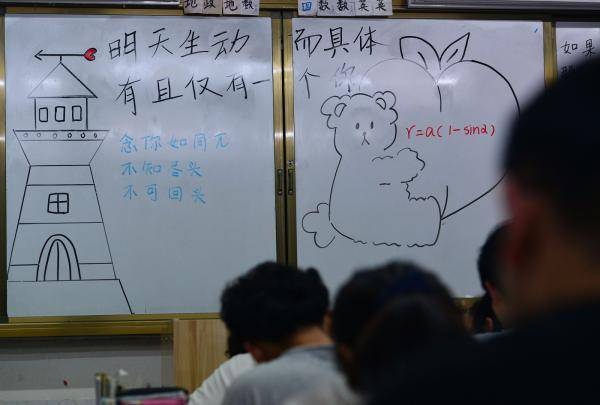 地政地数
四数数英英
明天生动而具体
有且仅有一个你
念你如同π
不知尽头
不可回头
r=a(1-sinα)
如果